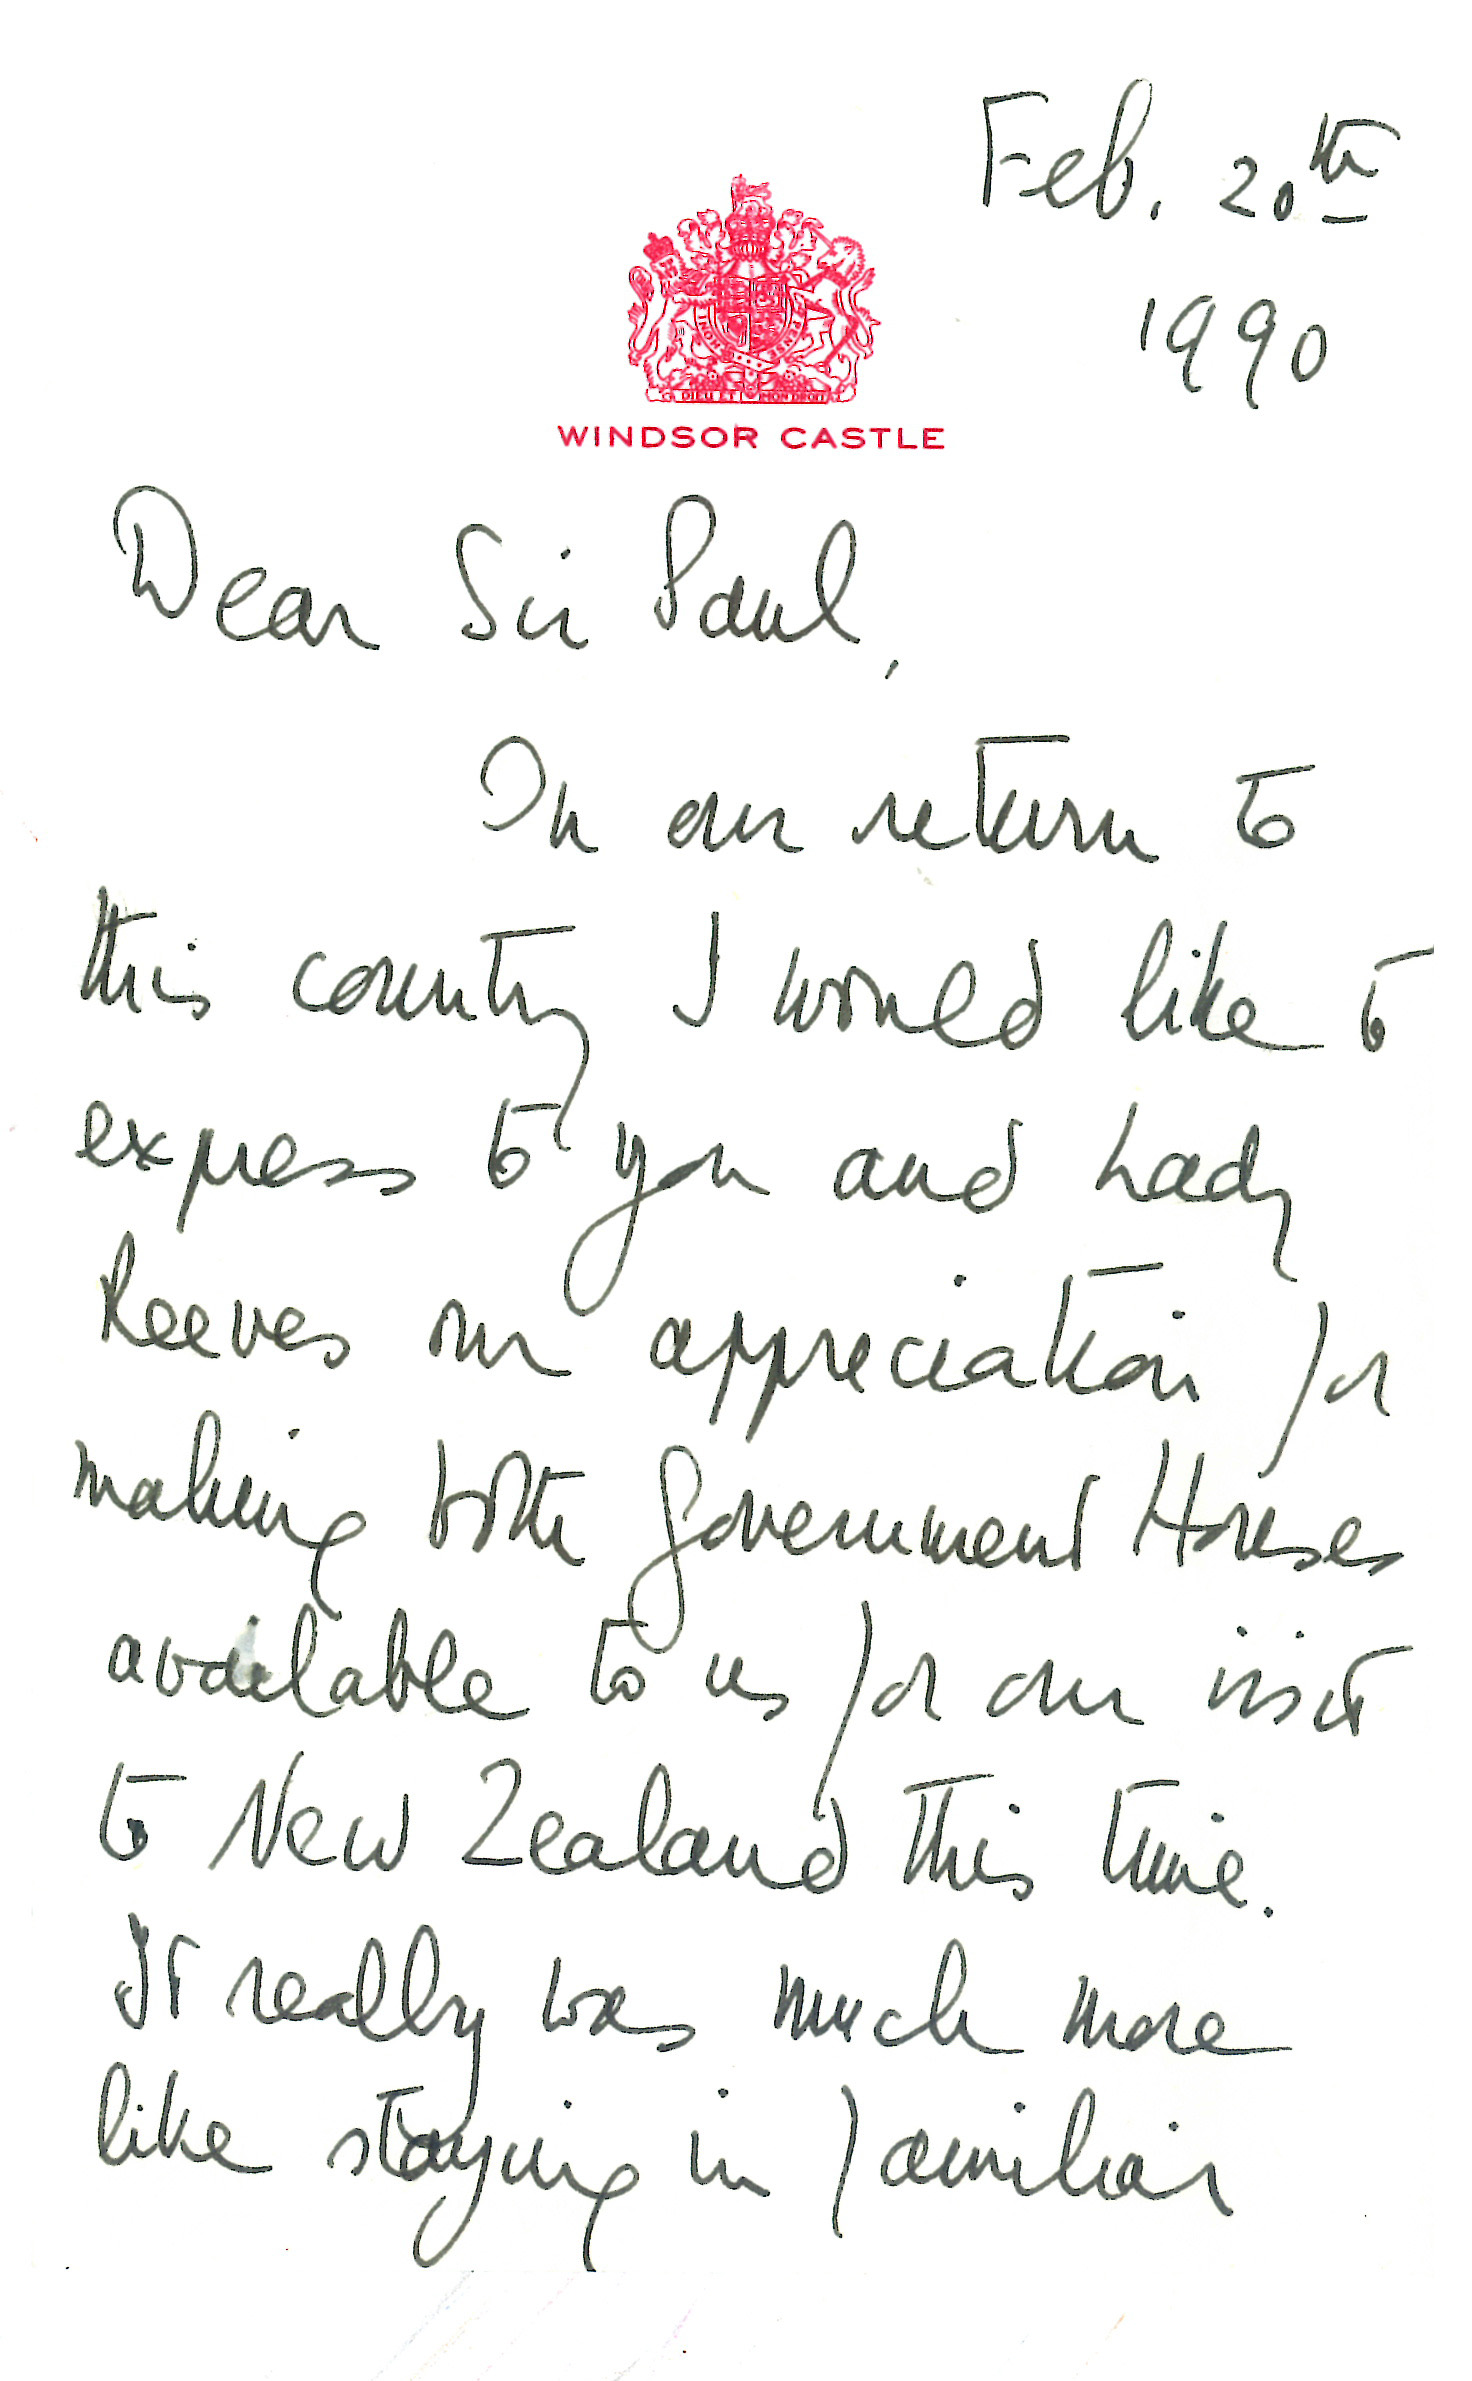 Feb. 20th
1990
HONI
PENSE
DIEU ET MON DROIT
WINDSOR CASTLE
Dear Sir Paul,
On our return to
this country I would like to
express to you and Lady
Reeves our appreciation for
making both Government Houses
available to us for our visit
to New Zealand this time.
It really was much more
like staying in familiar